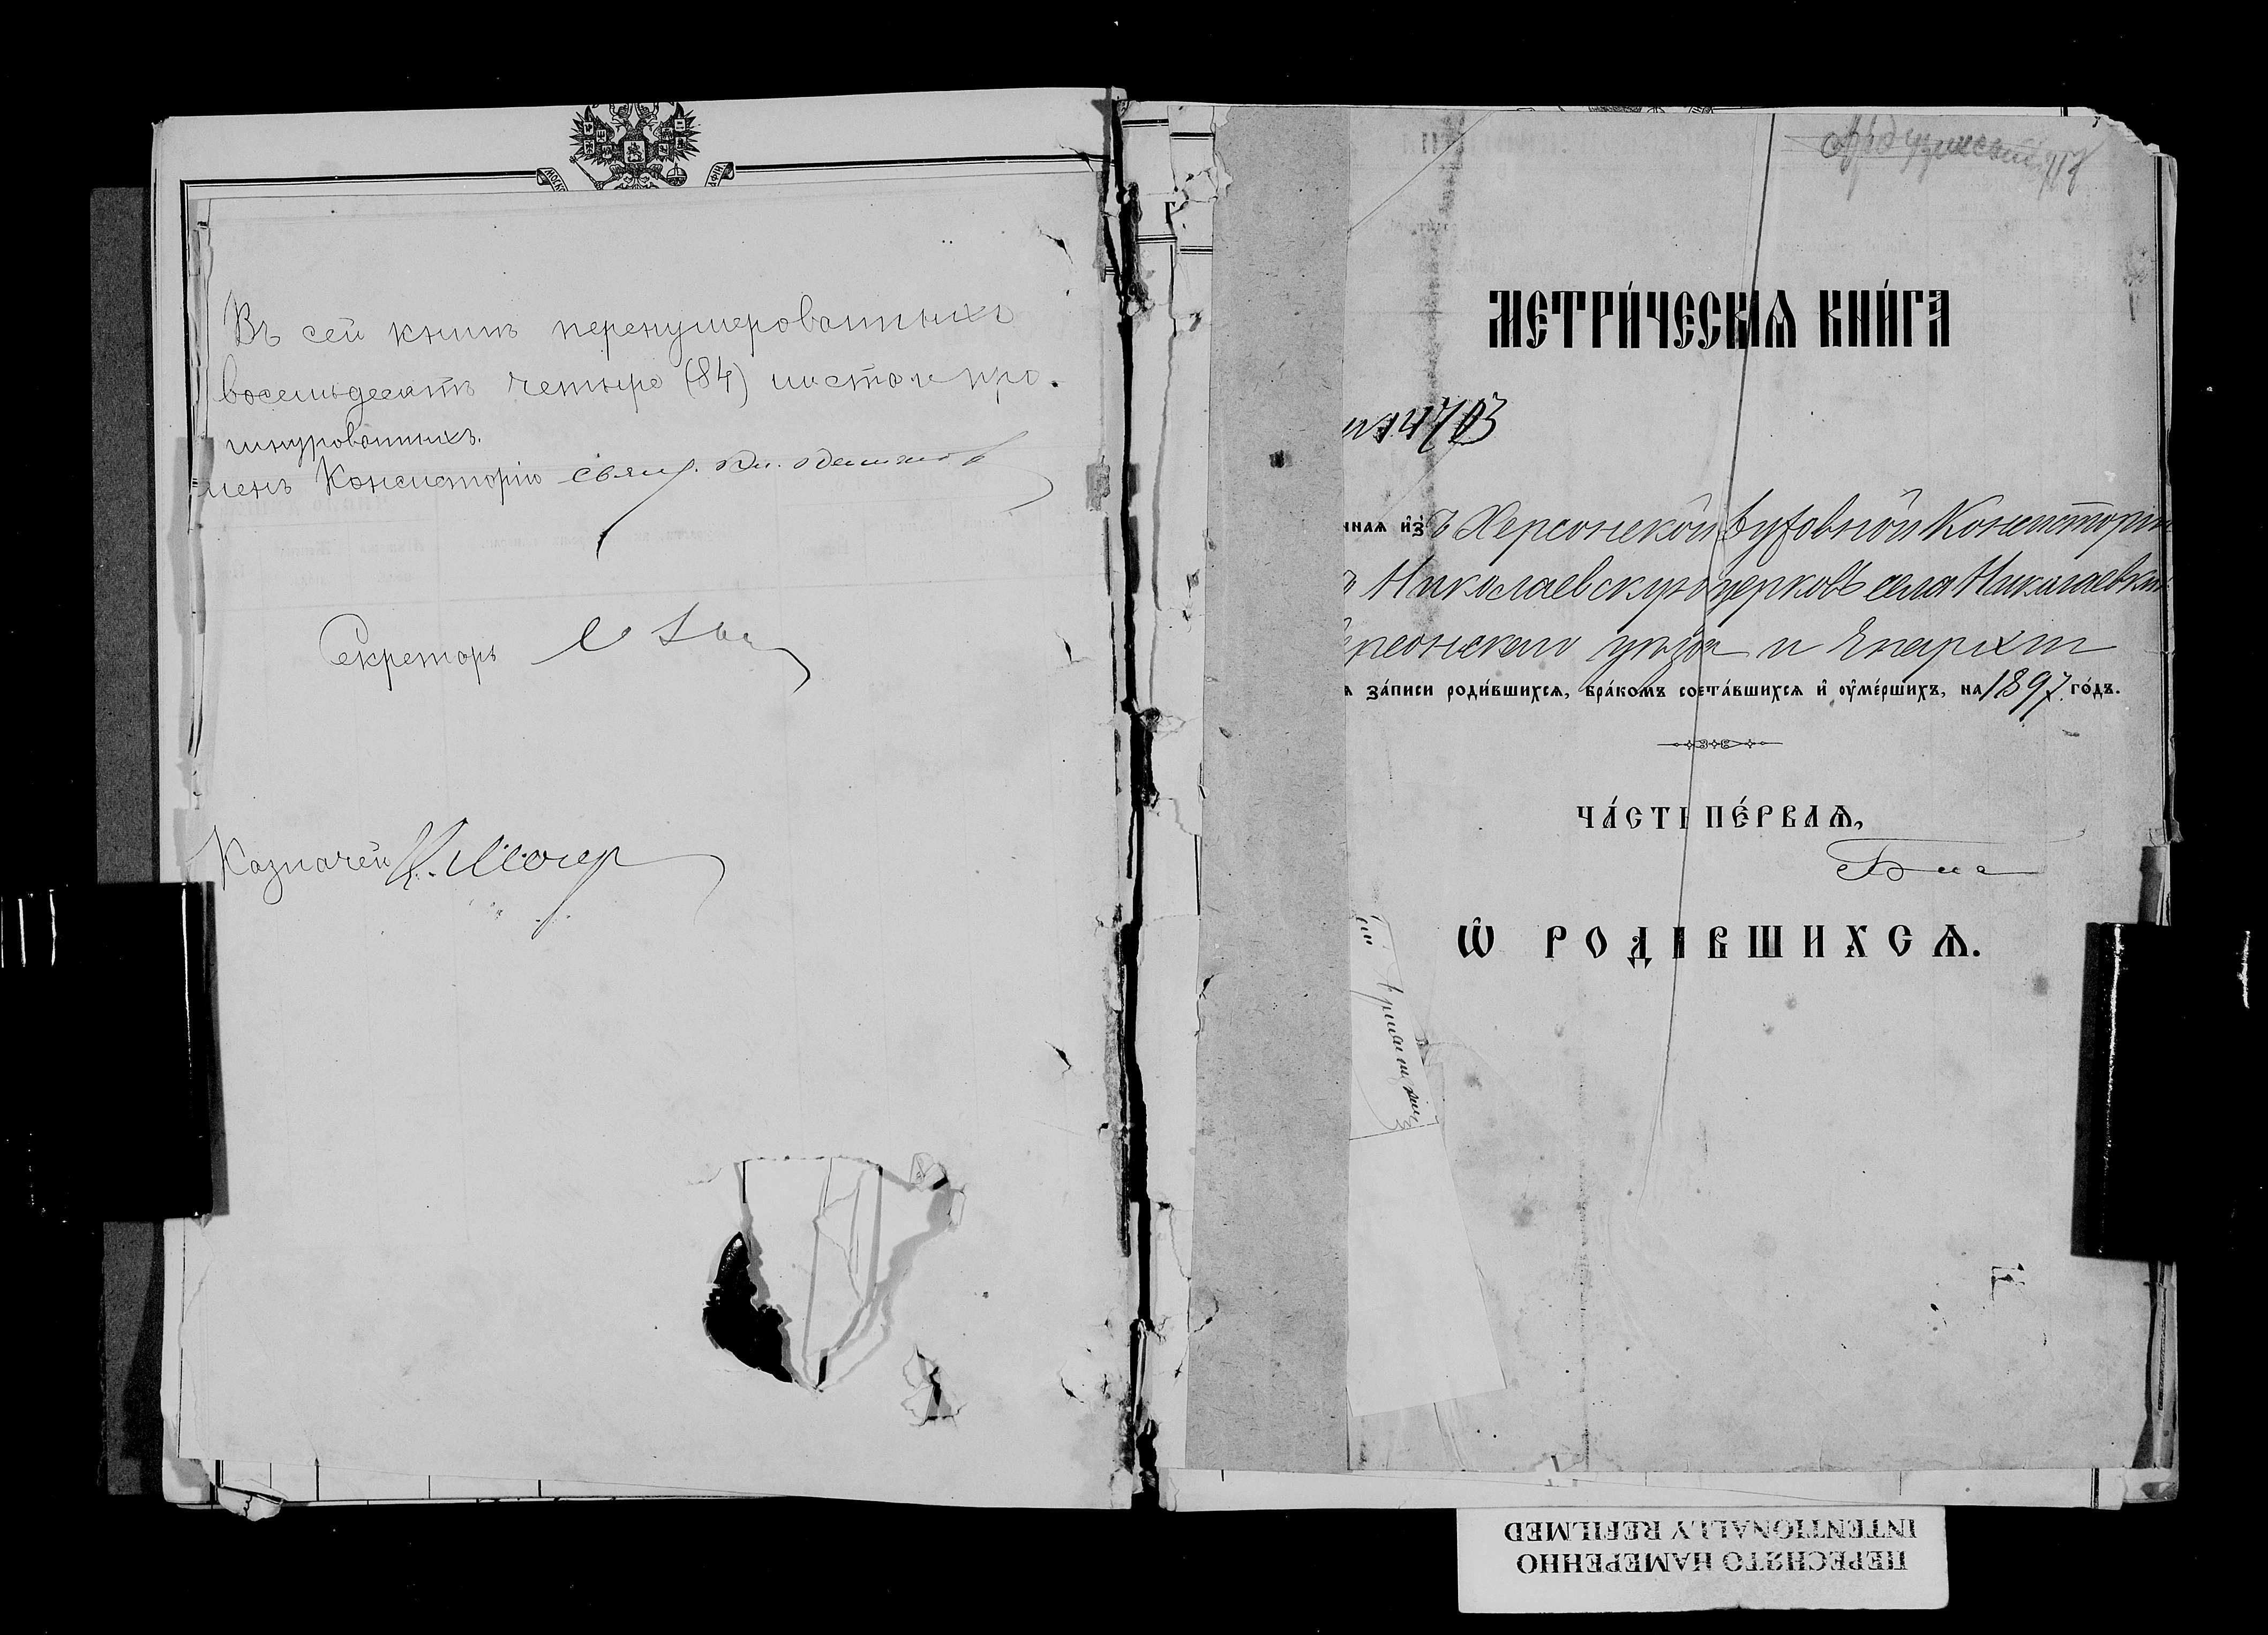 Въ сей книгѣ перенумерованныхъ
восемьдесятъ четыре (84) листа и про-
шнурованныхъ.
членъ Консисторіи свящ.
Секретарь
Казначей
МЕТРИ́ЧЕСКАЯ КНИ́ГА
нная изъ Херсонской Духовной Консисторіи
въ Николаевскую церковь села Николаевки
Херсонскаго уѣзда и Епархіи
я за́писи роди́вшихся, бра́комъ соста́вшихся и оуме́ршихъ, на 1897 го́дъ.
ЧА́СТЬ ПЕ́РВАЯ,
Ѡ РОДИ́ВШИХСЯ.
ПЕРЕСНЯТО НАМЕРЕННО
INTENTIONALLY REFILMED